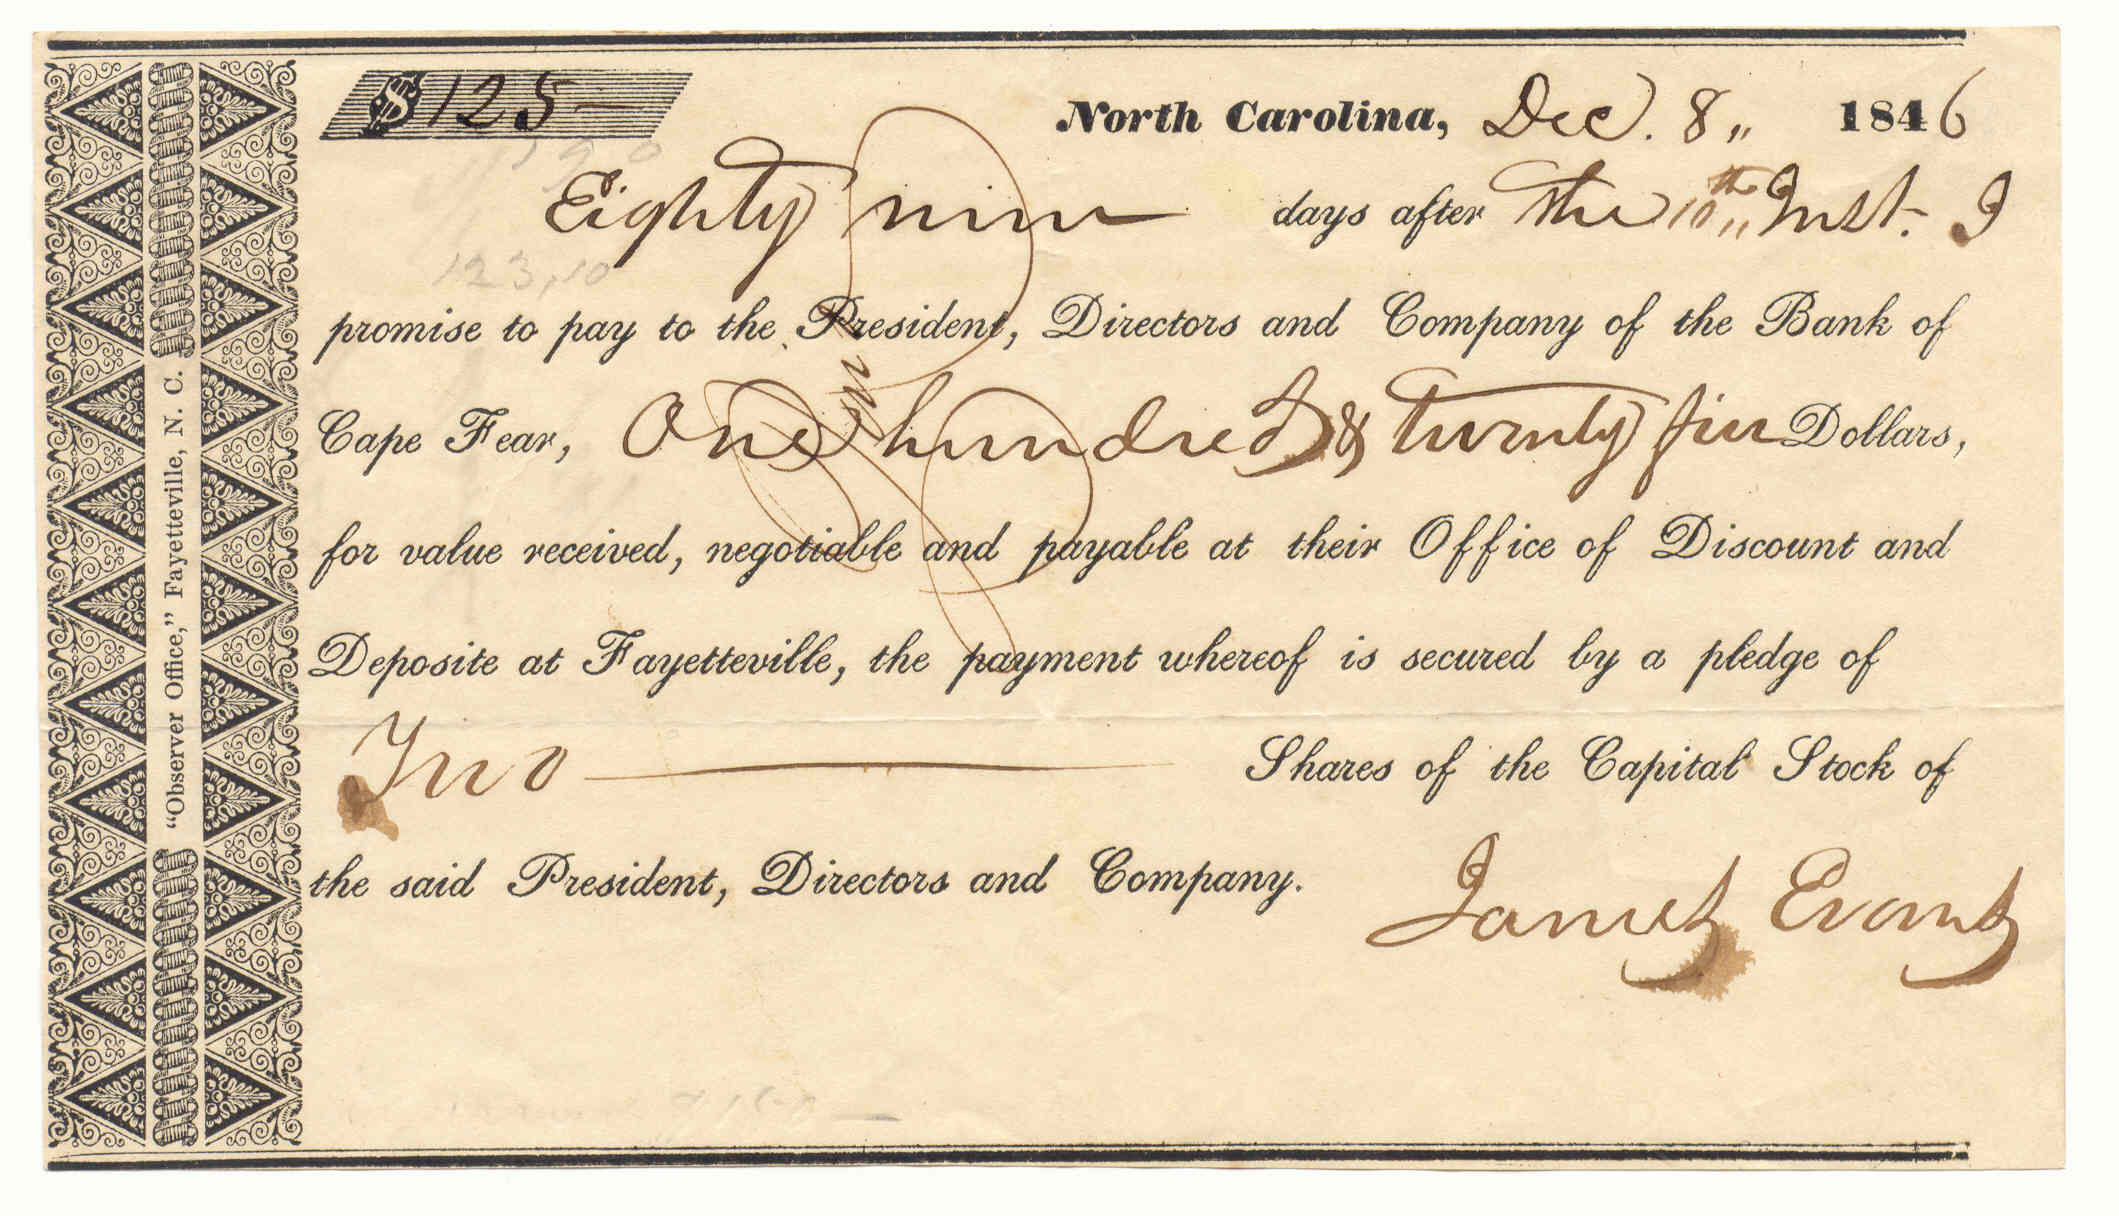 $125–
North Carolina, Dec. 8,, 1846
Eighty nine days after the 10th,, Inst. I
promise to pay to the President, Directors and Company of the Bank of
Cape Fear, One hundred & twenty five Dollars,
for value received, negotiable and payable at their Office of Discount and
Deposite at Fayetteville, the payment whereof is secured by a pledge of
Two Shares of the Capital Stock of
the said President, Directors and Company.
James Evans
123,10
"Observer Office," Fayetteville, N. C.